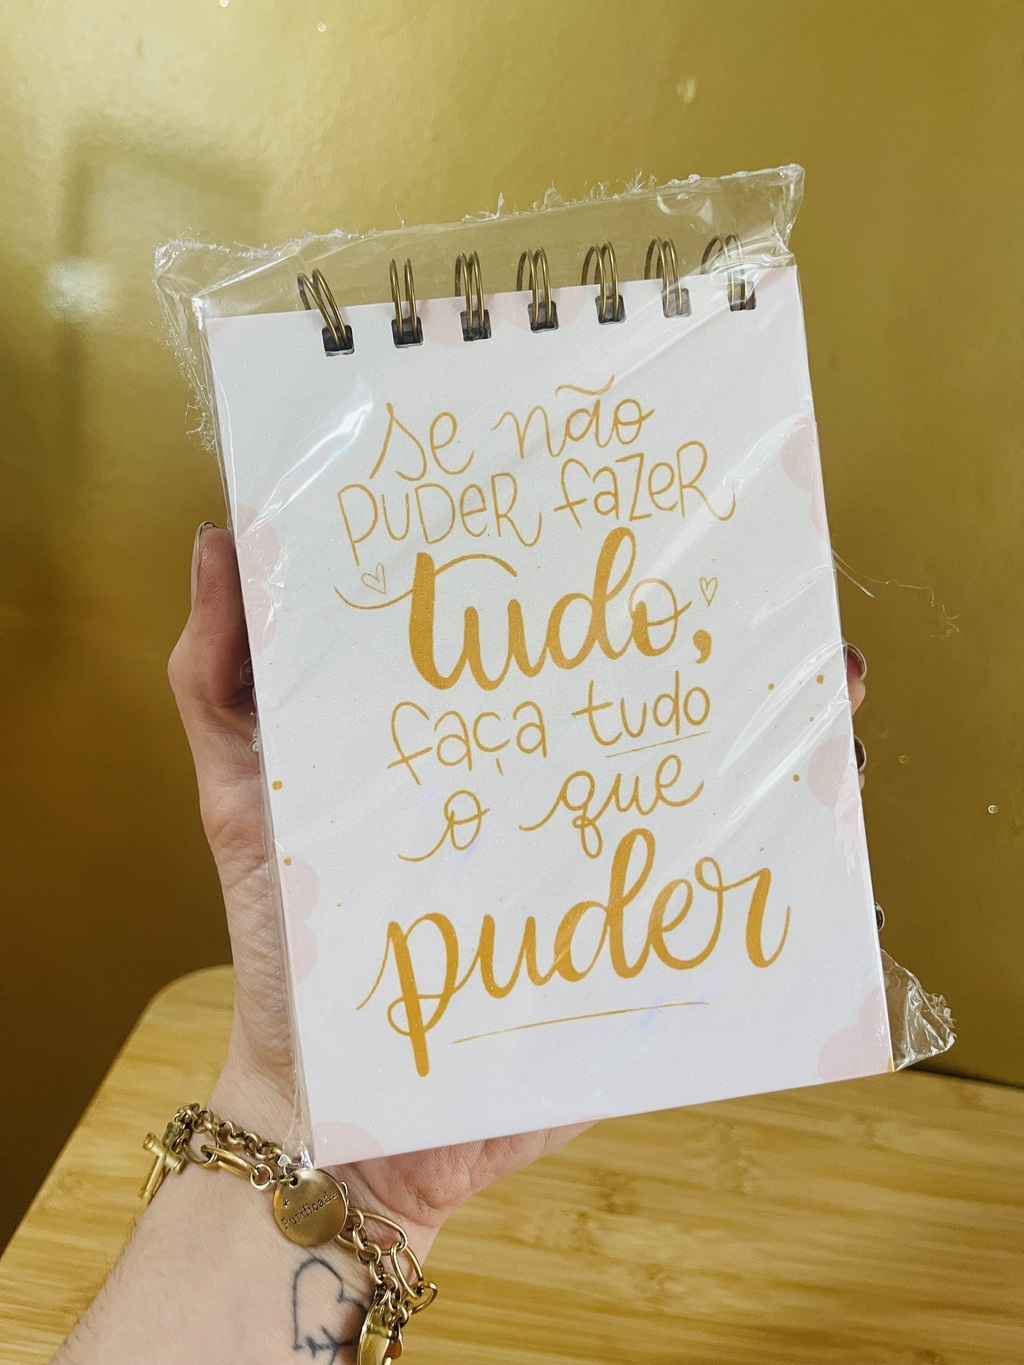 se não
PUDER fazer
tudo,
faça tudo
o que
puder
Purificada